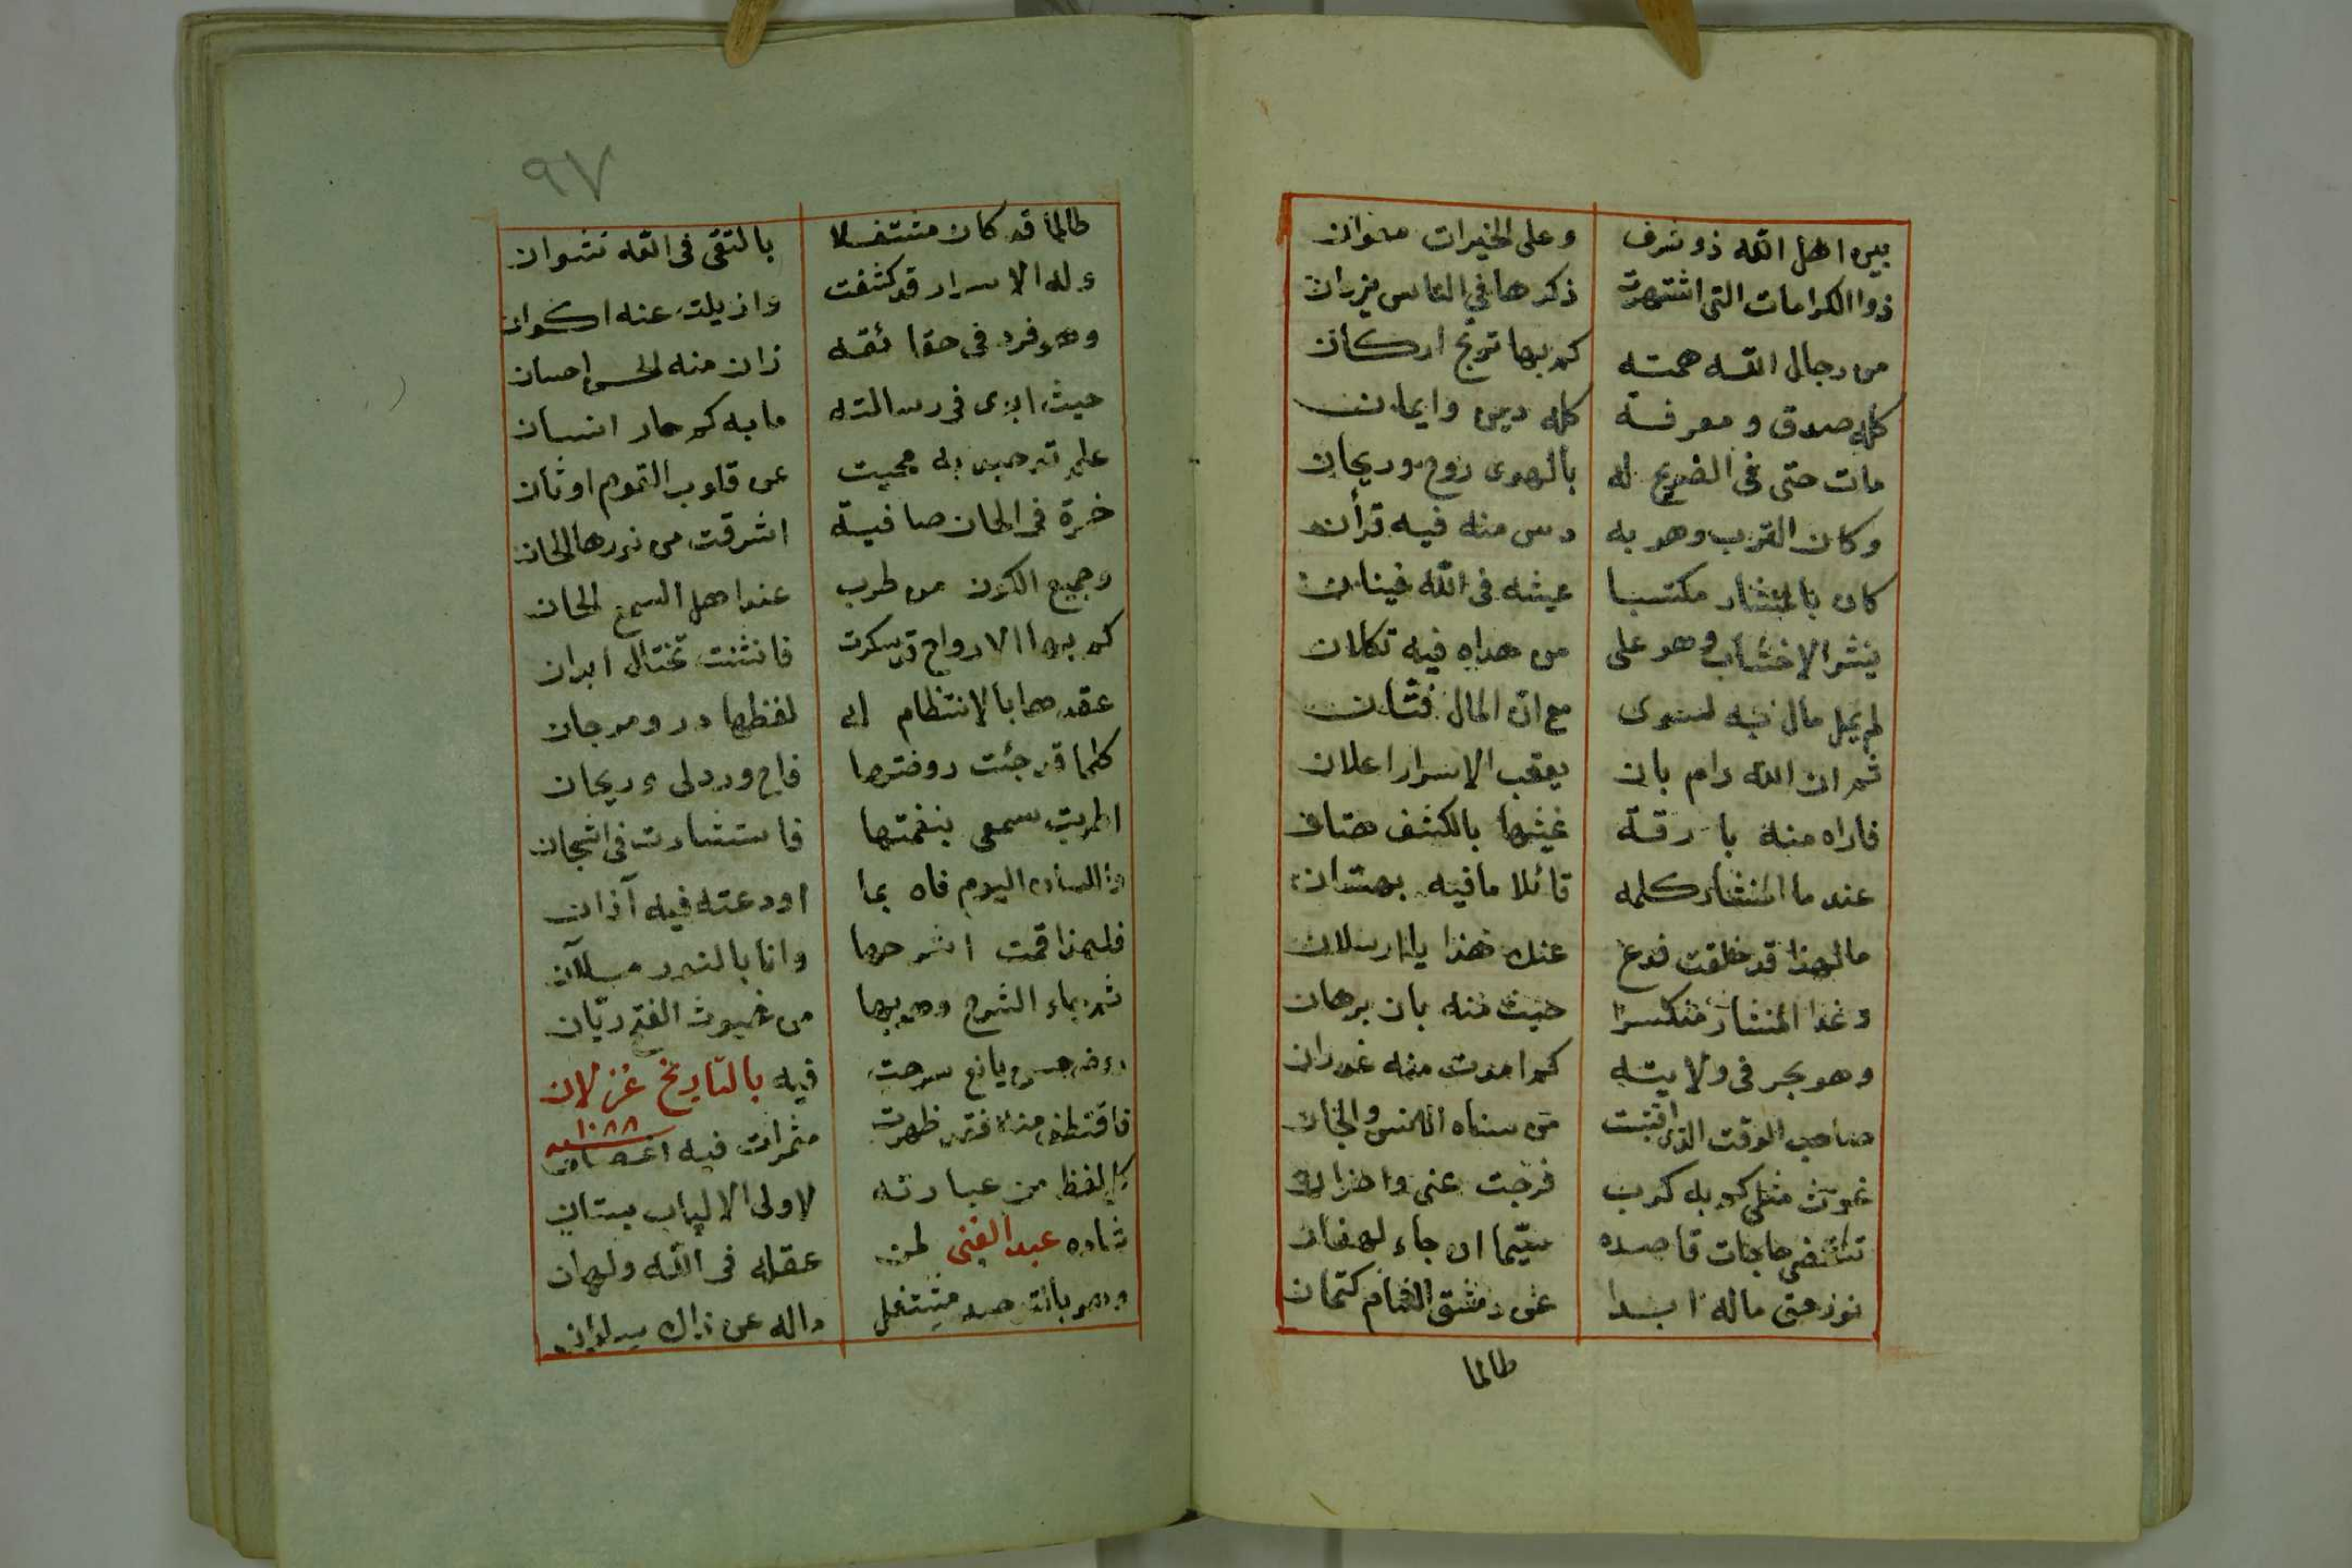 بين اهل الله ذو شرف وعلى الخيرات معوان
ذوا الكرامات التى اشتهرت ذكرها في الناس مزدان
من رجال الله همته كم بها توّج اركان
كله صدق ومعرفة كله دين وايمان
مات حتى في الضريح له بالهوى روح وريحان
وكان الترب وهو به درس منه فيه قرأن
كان بالمنشار مكتسبا عيشه فى الله فينان
ينشر الاخشاب وهو على من هداه فيه تكلان
لم يمل مال به لسوى مع ان المال فتّان
ثم ان الله رام بان يعقب الاسرار اعلان
فاراه منه بارقة غيثها بالكشف هتان
عند ما المنشار كلمه قائلا ما فيه بهتان
ما لهذا قد خلقت فدع عنك هذا يا ارسلان
وغدا المنشار منكسرا حيث منه بان برهان
وهو بحر فى ولايته كم امدت منه غدران
صاحب الوقت الذى اقتبست من سناه الانس والجان
غوث مثلي كم به كرب فرجت عنى واحزان
تنقضى حاجات قاصده سيّما ان جاء لهفان
نور حق ماله ابدا عن دمشق الشام كتمان
طالما
٩٧
طالما قد كان مشتغلا بالتقى فى الله نشوان
وله الاسرار قد كشفت وازيلت عنه اكوان
وهو فرد فى حقائقه زان منه الحسن احسان
حيث ابدى فى رسالته ما به كم حار انسان
علم توحيد به محيت عن قلوب القوم اوثان
خمرة فى الحان صافية اشرقت من نورها الحان
وجميع الكون من طرب عند اهل السمع الحان
كم بها الارواح قد سكرت فانثنت تختال ابدان
عقد صحابا الانتظام له لفظها در ومرجان
كلما قد جئت روضتها فاح ورد لى وريحان
اطربت سمعى بنغمتها فاستشارت فى اشجان
واللسان اليوم فاه بما اودعته فيه آذان
فلهذا قمت اشرحها وانا بالنور ملآن
ثم بماء الشرح وهو بها من غيوث الفتح ريّان
روض حسن يانع سرحت فيه بالتاريخ غزلان
١٠٨٨
فاقتطف منه فقد ظهرت مثمرات فيه اغصان
كل لفظ من عبارته لاولى الالباب بستان
شاده عبد الغنى لمن عقله فى الله ولهان
وهو بالتوحيد مشتغل ماله عن ذاك سلوان